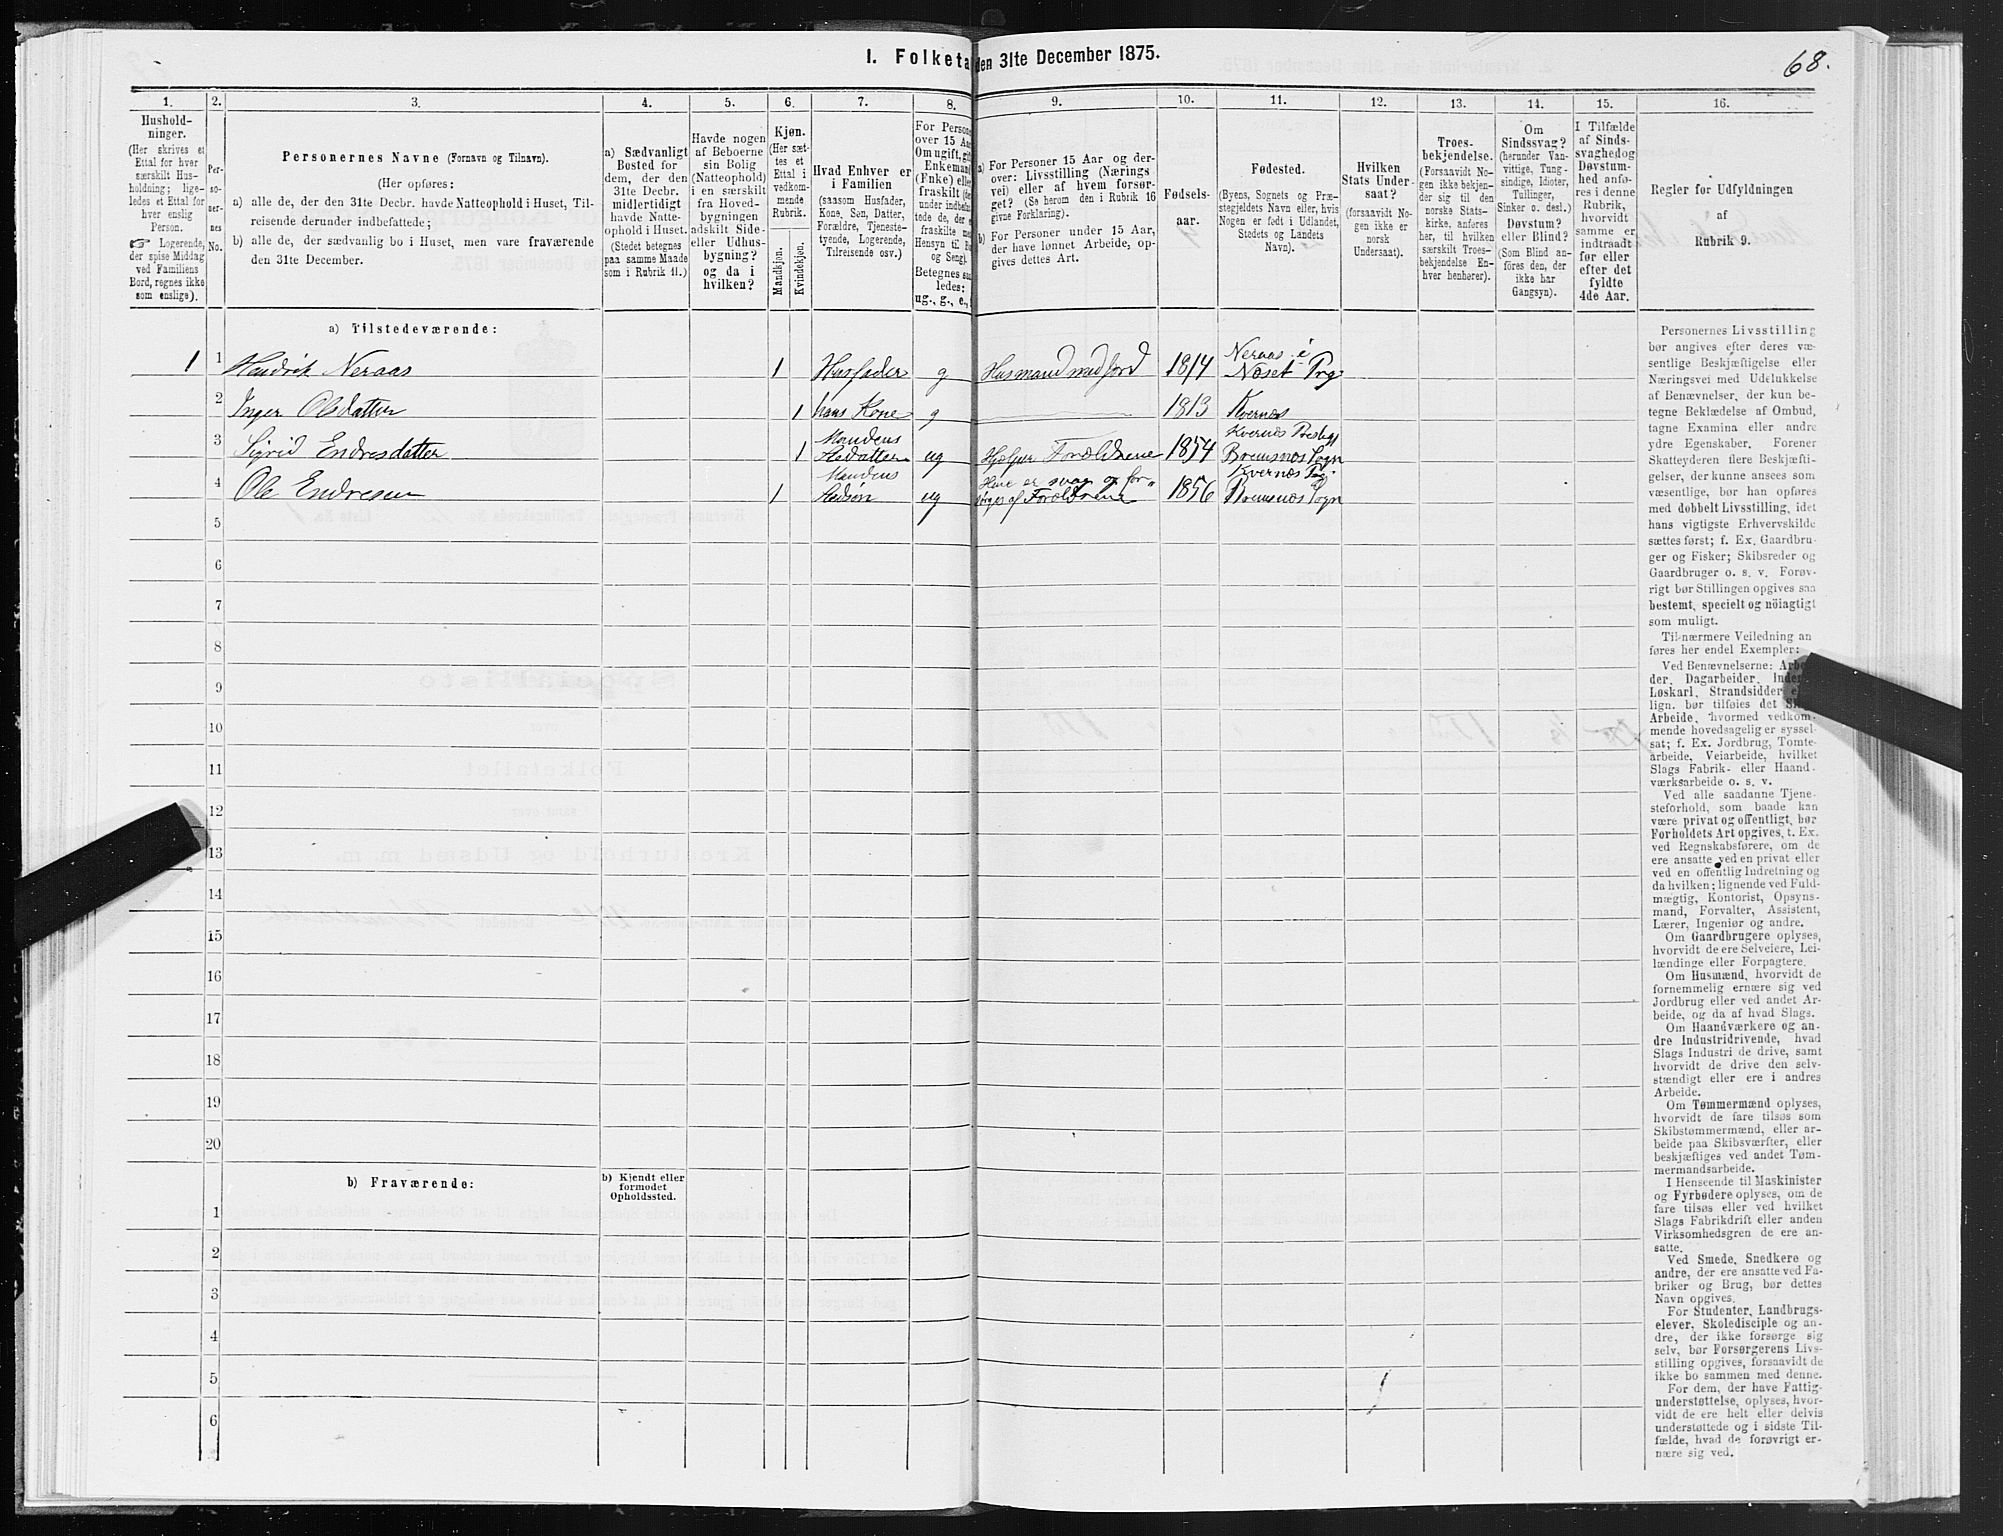 68.
I. Folketa den 31te December 1875.
1. 2. 3. 4. 5. 6. 7. 8. 9. 10. 11. 12. 13. 14. 15. 16.
Hushold-
ninger.
(Her skrives et
Ettal for hver
særskilt Hus-
holdning; lige-
ledes et Ettal for
hver enslig
Person.
☞ Logerende,
der spise Middag
ved Familiens
Bord, regnes ikke
som enslige).
Per-
so-
ner-
nes
No.
Personernes Navne (Fornavn og Tilnavn).
(Her opføres:
a) alle de, der den 31te Decbr. havde Natteophold i Huset, Til-
reisende derunder indbefattede;
b) alle de, der sædvanlig bo i Huset, men vare fraværende
den 31te December.
a) Sædvanligt
Bosted for
dem, der den
31te Decbr.
midlertidigt
havde Natte-
ophold i Huset.
(Stedet betegnes
paa samme Maade
som i Rubrik 11.)
Havde nogen
af Beboerne
sin Bolig
(Natteophold)
i en særskilt
fra Hoved-
bygningen
adskilt Side-
eller Udhus-
bygning?
og da i
hvilken?
Kjøn.
(Her sæt-
tes et
Ettal i
vedkom-
mende
Rubrik.
Mandkjøn.
Kvindekjøn.
Hvad Enhver er
i Familien
(saasom Husfader,
Kone, Søn, Datter,
Forældre, Tjeneste-
tyende, Logerende,
Tilreisende osv.)
For Persone
over 15 Aa
Om ugift, gif
Enkemand
(Enke) elle
fraskilt (de
under indbefa
tede de, der e
fraskilte me
Hensyn til Bo
og Seng).
Betegnes saa
ledes:
ug., g., e.,
a) For Personer 15 Aar og der-
over: Livsstilling (Nærings
vei) eller af hvem forsør-
get? (Se herom den i Rubrik 16
givne Forklaring).
b) For Personer under 15 Aar,
der have lønnet Arbeide, op-
gives dettes Art.
Fødsels-
aar.
Fødested.
(Byens, Sognets og Præ-
stegjeldets Navn eller, hvis
Nogen er født i Udlandet,
Stedets og Landets
Navn).
Hvilken
Stats Under-
saat?
(forsaavidt No-
gen ikke er
norsk
Undersaat).
Troes-
bekjendelse.
(Forsaavidt No-
gen ikke bekjen-
der sig til den
norske Stats-
kirke, anføres
her, til hvilken
særskilt Troes-
bekjendelse En-
hver henhører).
Om
Sindssvag?
(herunder Van-
vittige, Tung-
sindige, Idioter,
Tullinger,
Sinker o. desl.)
Døvstum?
eller Blind?
(Som Blind an-
føres den, der
ikke har
Gangsyn).
I Tilfælde
af Sinds-
svaghed og
Døvstum-
hed anfø-
res i denne
Rubrik,
hvorvidt
samme er
indtraadt
før eller
efter det
fyldte
4de Aar.
Regler for Udfyldningen
af
Rubrik 9.
a) Tilstedeværende:
1 1 Hendrik Neraas 1 Husfader g Husmand med Jord 1814 Neraas i
Næset Prg.
2 Inger Olsdatter 1 hans Kone g 1813 Kvernæs
3 Sigrid Endresdatter 1 Mandens
Stedatter ug Hjelper Forældrene 1854 Kvernæs Prestegj
Bremsnæs Sogn
4 Ole Endresen 1 Mandens
Stedsøn ug Hine er svag og for-
sørges af Forældrene 1856 Kvernæs Prg.
Bremsnæs Sogn
5
6
7
8
9
10
11
12
13
14
15
16
17
18
19
20
b) Fraværende:
b) Kjendt eller
formodet
Opholdssted.
1
2
3
4
5
6
Personernes Livsstilling
bør angives efter deres væ-
sentlige Beskjæftigelse eller
Næringsvei med Udelukkelse
af Benævnelser, der kun be-
tegne Beklædelse af Ombud,
tagne Examina eller andre
ydre Egenskaber. Forener
Skatteyderen flere Beskjæfti-
gelser, der kunne ansees som
væsentlige, bør han opføres
med dobbelt Livsstilling, idet
hans vigtigste Erhvervskilde
sættes først; f. Ex. Gaardbru-
ger og Fisker; Skibsreder og
Gaardbruger o. s. v. Forøv-
rigt bør Stillingen opgives saa
bestemt, specielt og nöiagtigt
som muligt.
Til nærmere Veiledning an
føres her endel Exempler:
Ved Benævnelserne: Arbei-
der, Dagarbeider, Inderst,
Løskarl, Strandsidder e
lign. bør tilføies det Slags
Arbeide, hvormed vedkom-
mende hovedsagelig er syssel-
sat; f. Ex. Jordbrug, Tomte-
arbeide, Veiarbeide, hvilket
Slags Fabrik- eller Haand-
værksarbeide o. s. v.
Ved alle saadanne Tjene-
steforhold, som baade kan
være privat og offentligt, bør
Forholdets Art opgives, t. Ex.
ved Regnskabsførere, om de
ere ansatte ved en privat eller
ved en offentlig Indretning og
da hvilken; lignende ved Fuld-
mægtig, Kontorist, Opsyns-
mand, Forvalter, Assistent,
Lærer, Ingeniør og andre.
Om Gaardbrugere oplyses,
hvorvidt de ere Selveiere, Lei-
lændinge eller Forpagtere.
Om Husmænd, hvorvidt de
fornemmelig ernære sig ved
Jordbrug eller ved andet Ar-
beide, og da af hvad Slags.
Om Haandværkere og an-
dre Industridrivende, hvad
Slags Industri de drive, samt
hvorvidt de drive den selv-
stændigt eller ere i andres
Arbeide.
Om Tømmermænd oplyses,
hvorvidt de fare tilsøs som
Skibstømmermænd, eller ar-
beide paa Skibsværfter, eller
beskjæftiges ved andet Tøm-
mermandsarbeide.
I Henseende til Maskinister
og Fyrbødere oplyses, om de
fare tilsøs eller ved hvilket
Slags Fabrikdrift eller anden
Virksomhedsgren de ere an-
satte.
Ved Smede, Snedkere og
andre, der ere ansatte ved Fa-
briker og Brug, bør dettes
Navn opgives.
For Studenter, Landbrugs-
elever, Skoledisciple og an-
dre, der ikke forsørge sig
selv, bør Forsørgerens Livs-
stilling opgives, forsaavidt de
ikke bo sammen med denne.
For dem, der have Fattig-
understøttelse, oplyses, hvor-
vidt de ere helt eller delvis
understøttede og i sidste Til-
fælde, hvad de forøvrigt er-
nære sig ved.